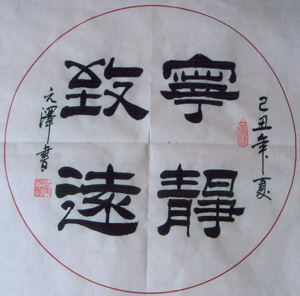 寧靜
致遠
己丑年夏
元澤書